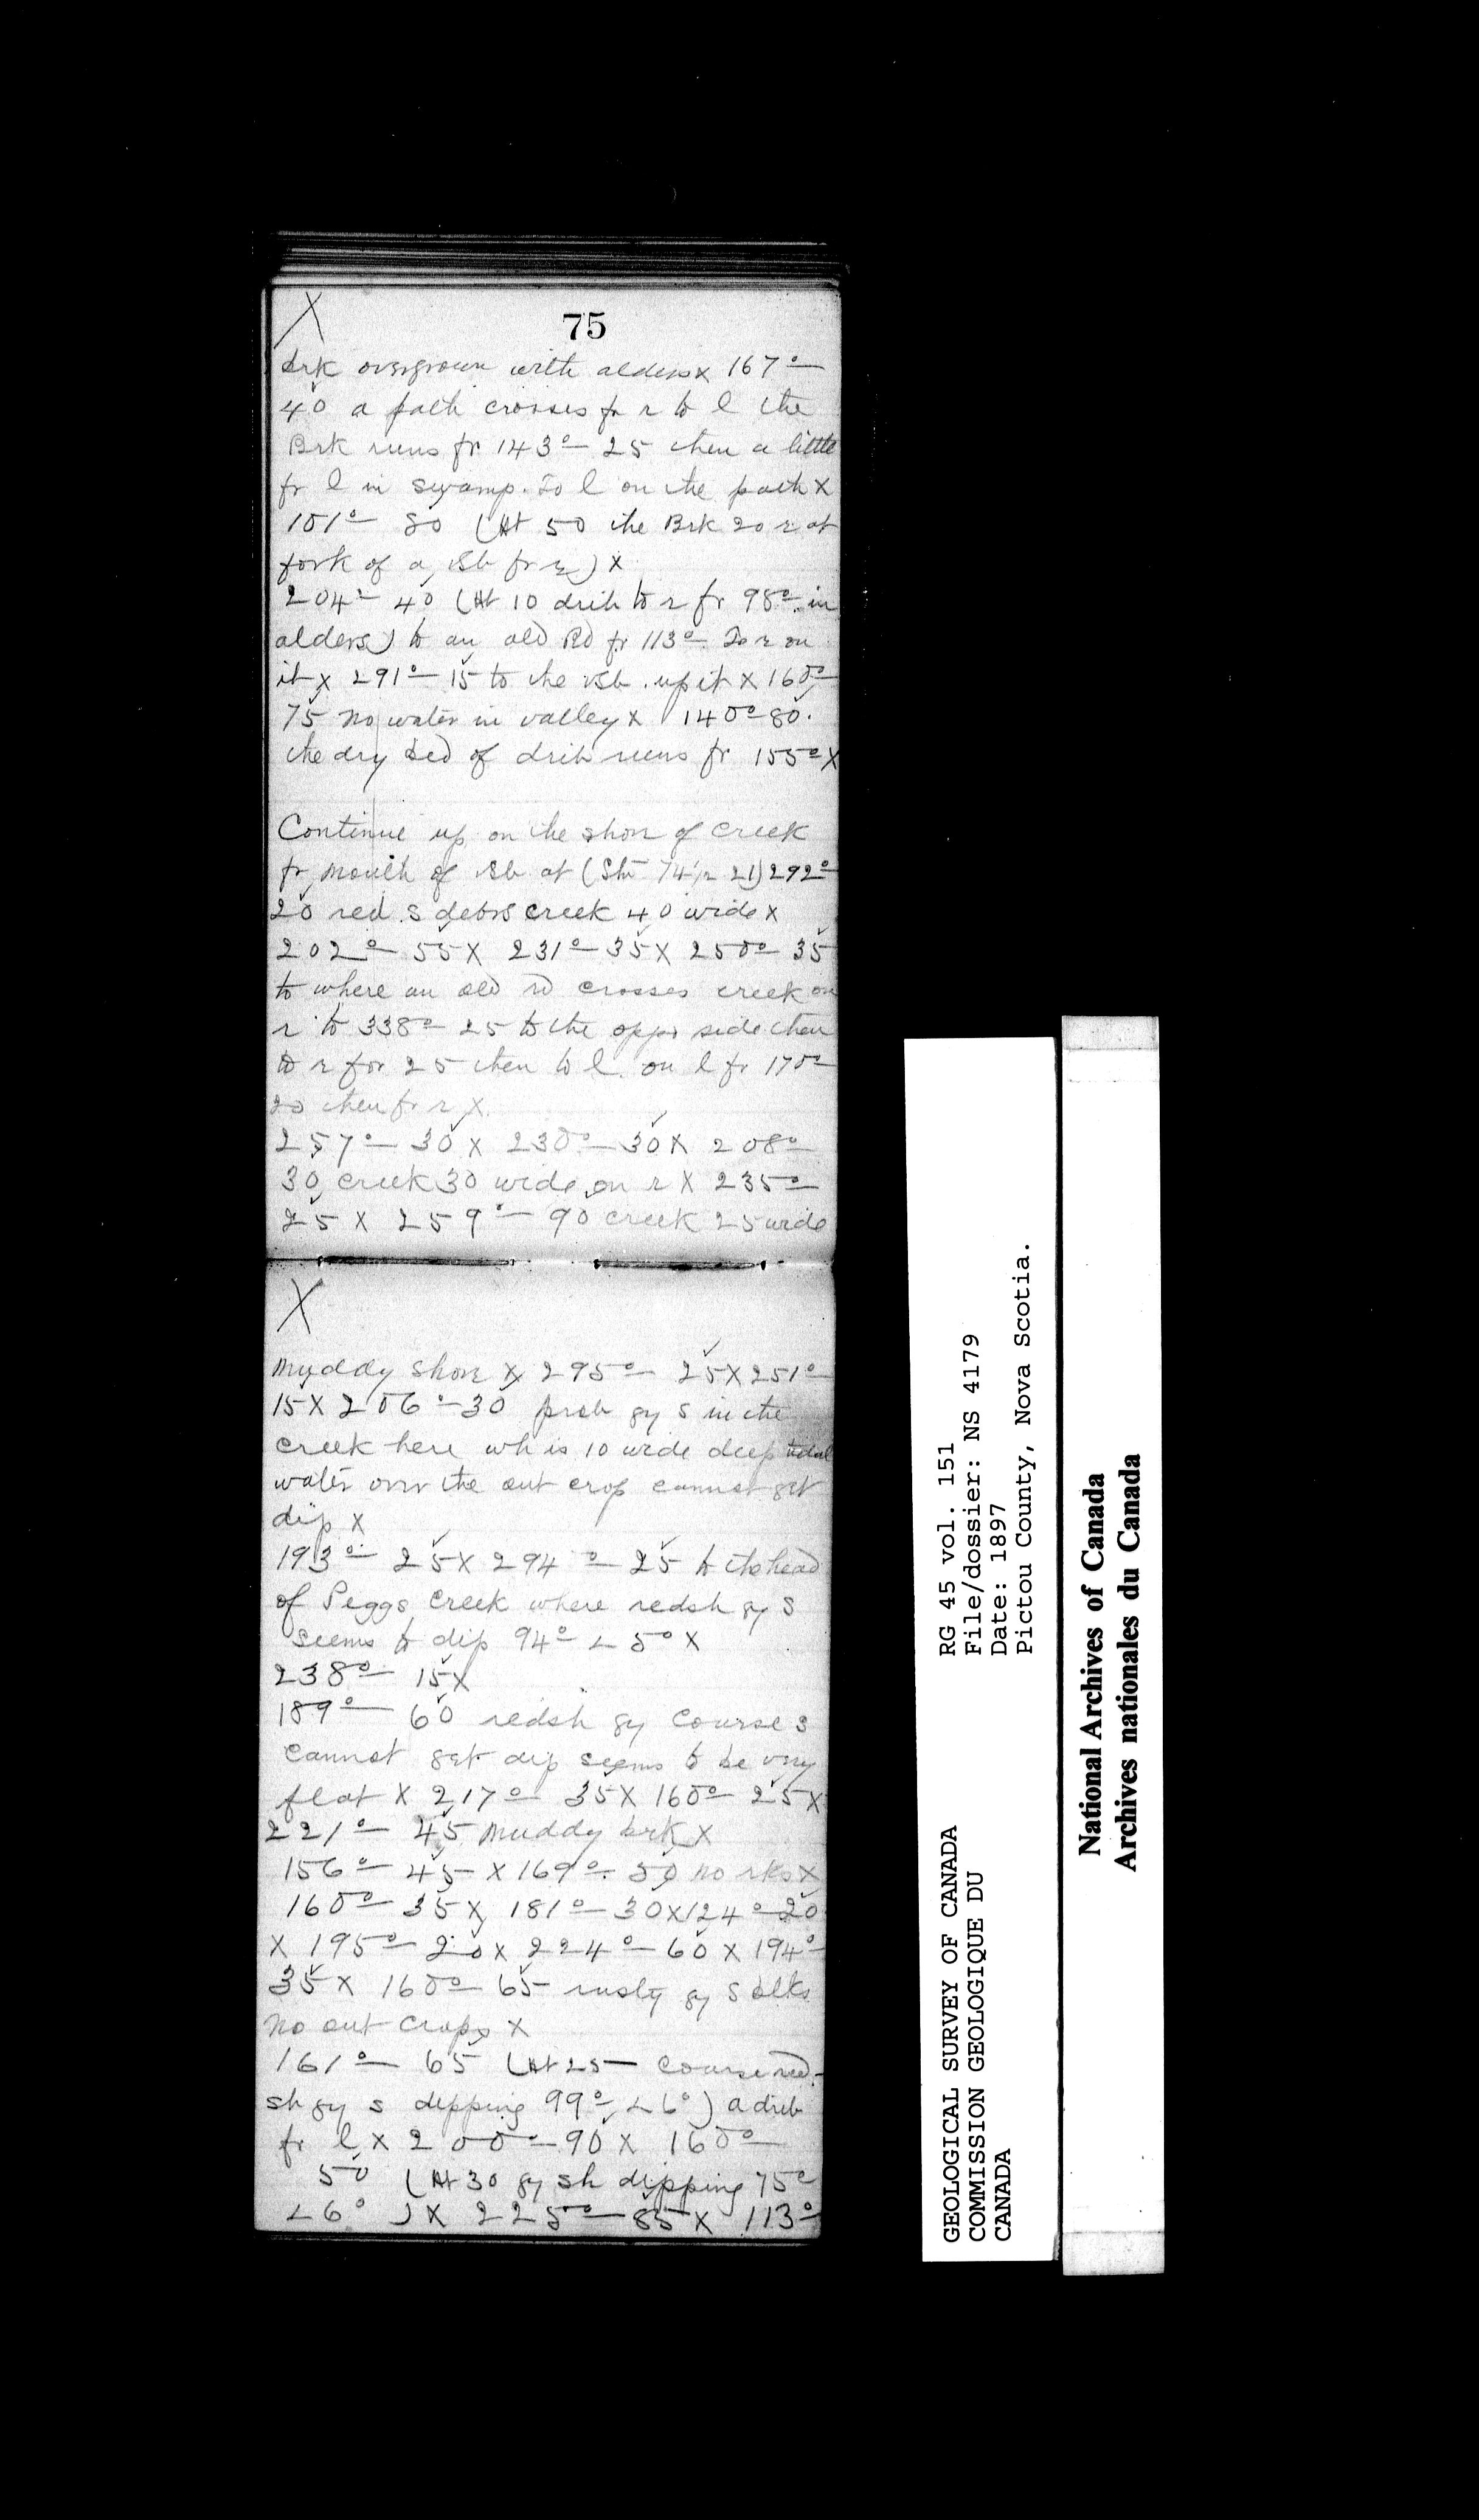 X
75
brk overgrown with alders x 167°—
40 a path crosses fr r to l the
Brk runs fr 143°— 25 then a little
fr l in swamp. To l on the path x
101°— 80 (At 50 the Brk 20 r at
fork of a fr r) x
204°— 40 (At 10 drib to r fr 98°— in
alders) to an old Rd fr 113°— To r on
it x 291°— 15 to the up it x 160°—
75 no water in valley x 140°— 80.
the dry bed of drib runs fr 155°— x
Continue up on the shore of creek
fr mouth of at (Stn 74 21) 292°—
20 red s debris creek 40 wide x
202°— 55 x 231°— 35 x 250°— 35
to where an old rd crosses creek on
r to 338°— 25 to the oppo side then
to r for 25 then to l on l fr 170°—
20 then fr r x
257°— 30 x 230°— 30 x 208°—
30 creek 30 wide on r x 235°—
25 x 259°— 90 creek 25 wide
X
Muddy shore x 295°— 25 x 251°—
15 x 206°— 30 prob gy s in the
creek here wh is 10 wide deep tidal
water over the out crop cannot get
dip x
193°— 25 x 294°— 25 to the head
of Peggs Creek where redsh gy s
seems to dip 94°— ∠ 5° x
238°— 15 x
189°— 60 redsh gy course s
cannot get dip seems to be very
flat x 217°— 35 x 160°— 25 x
221°— 45 muddy brk x
156°— 45 x 169°— 50 no rks x
160°— 35 x 181°— 30 x 124°— 20
x 195°— 20 x 224°— 60 x 194°—
35 x 160°— 65 rusty gy s blks
no out crops x
161°— 65 (At 25 — course red-
sh gy s dipping 99°— ∠ 6°) a drib
fr l x 200°— 90 x 160°—
50 (At 30 gy sh dipping 75°—
∠ 6° ) x 225°— 85 x 113°—
GEOLOGICAL SURVEY OF CANADA
COMMISSION GEOLOGIQUE DU
CANADA
RG 45 vol. 151
File/dossier: NS 4179
Date: 1897
Pictou County, Nova Scotia.
National Archives of Canada
Archives nationales du Canada